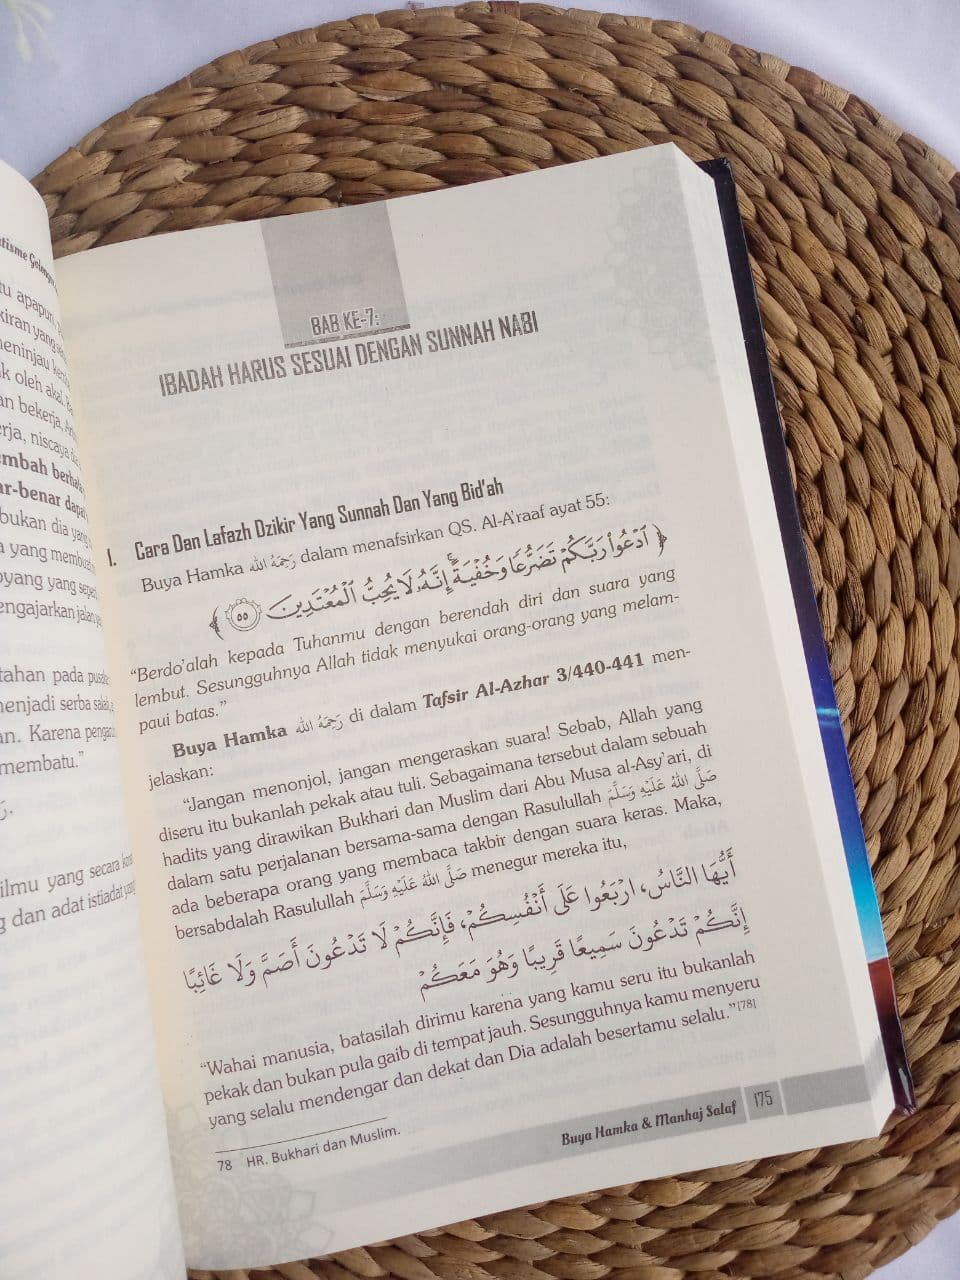 tisme Golongan
tu apapun,
kiran yang
meninjau
k oleh akal.
an bekerja,
rja, niscaya
embah berhala
ar-benar dapat
bukan dia yang
a yang membuat
oyang yang
engajarkan jalan
tahan pada
menjadi serba salah,
an. Karena
membatu."
ilmu yang secara
g dan adat istiadat yang
BAB KE-7:
IBADAH HARUS SESUAI DENGAN SUNNAH NABI
I. Cara Dan Lafazh Dzikir Yang Sunnah Dan Yang Bid'ah
Buya Hamka رَحِمَهُ الله dalam menafsirkan QS. Al-A'raaf ayat 55:
﴿ ٱدۡعُواْ رَبَّكُمۡ تَضَرُّعٗا وَخُفۡيَةًۚ إِنَّهُۥ لَا يُحِبُّ ٱلۡمُعۡتَدِينَ ٥٥ ﴾
"Berdo'alah kepada Tuhanmu dengan berendah diri dan suara yang
lembut. Sesungguhnya Allah tidak menyukai orang-orang yang melam-
paui batas."
Buya Hamka رَحِمَهُ الله di dalam Tafsir Al-Azhar 3/440-441 men-
jelaskan:
"Jangan menonjol, jangan mengeraskan suara! Sebab, Allah yang
diseru itu bukanlah pekak atau tuli. Sebagaimana tersebut dalam sebuah
hadits yang dirawikan Bukhari dan Muslim dari Abu Musa al-Asy'ari, di
dalam satu perjalanan bersama-sama dengan Rasulullah صَلَّى اللهُ عَلَيْهِ وَسَلَّمَ
ada beberapa orang yang membaca takbir dengan suara keras. Maka,
bersabdalah Rasulullah صَلَّى اللهُ عَلَيْهِ وَسَلَّمَ menegur mereka itu,
أَيُّهَا النَّاسُ، ارْبَعُوا عَلَى أَنْفُسِكُمْ، فَإِنَّكُمْ لَا تَدْعُونَ أَصَمَّ وَلَا غَائِبًا
إِنَّكُمْ تَدْعُونَ سَمِيعًا قَرِيبًا وَهُوَ مَعَكُمْ
"Wahai manusia, batasilah dirimu karena yang kamu seru itu bukanlah
pekak dan bukan pula gaib di tempat jauh. Sesungguhnya kamu menyeru
yang selalu mendengar dan dekat dan Dia adalah besertamu selalu."[78]
78 HR. Bukhari dan Muslim.
Buya Hamka & Manhaj Salaf 175